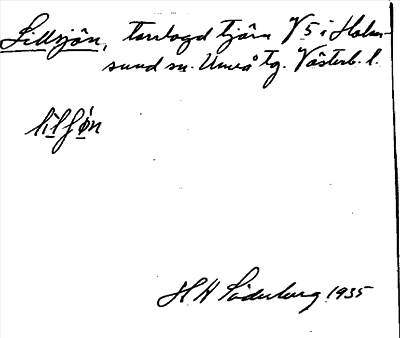 Lillsjön, torrlagd tjärn V 5 i Holm-
sund sn. Umeå tg. Västerb. l.
lilʃön
H H Söderberg 1935